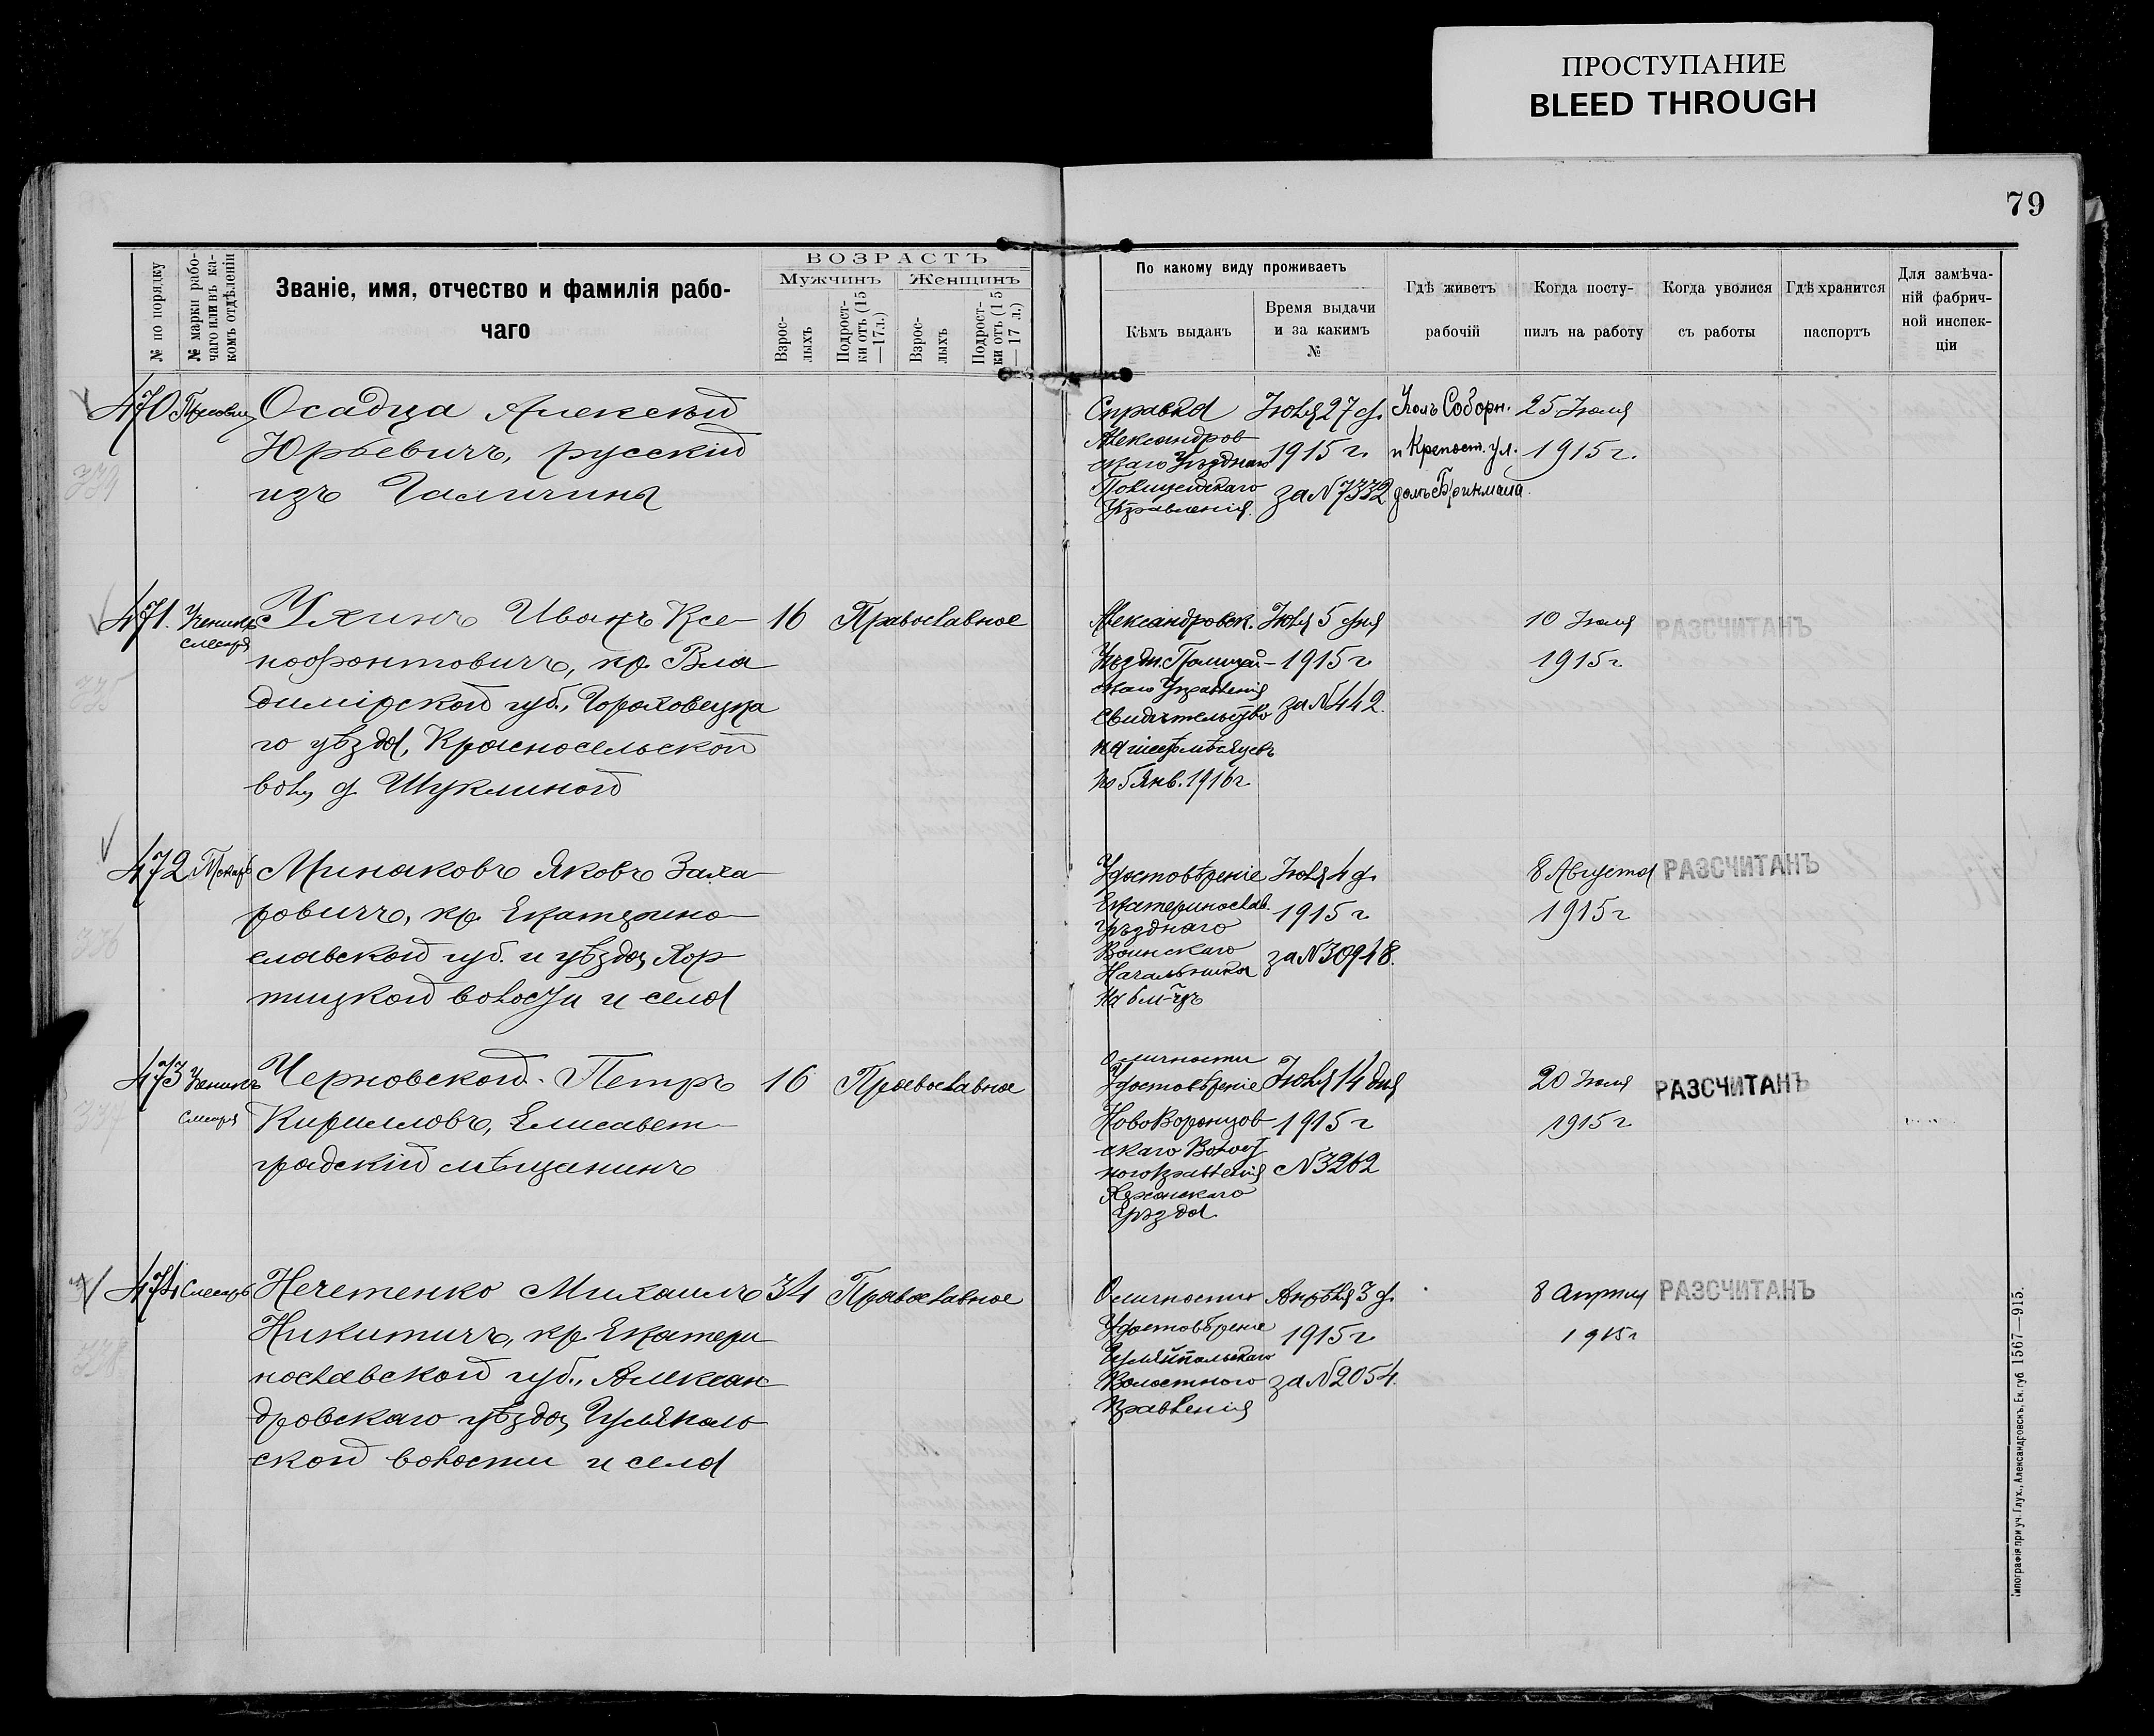 ПРОСТУПАНИЕ
BLEED THROUGH
79
№ по порядку
№ марки рабо-
чаго или въ ка-
комъ отдѣленіи
Званіе, имя, отчество и фамилія рабо-
чаго
ВОЗРАСТЪ
Мужчинъ
Женщинъ
Взрос-
лыхъ
Подрост-
ки отъ (15
—17 л.)
Взрос-
лыхъ
Подрост-
ки отъ (15
—17 л.)
По какому виду проживаетъ
Кѣмъ выданъ
Время выдачи
и за какимъ
№
Гдѣ живетъ
рабочій
Когда посту-
пилъ на работу
Когда уволися
съ работы
Гдѣ хранится
паспортъ
Для замѣча-
ній фабрич-
ной инспек-
ціи
470
Осадца Алексѣй
Юрьевичъ, русскій
изъ Галичины
Справка
Александров
скаго Уѣзднаго
Полицейскаго
Управленія.
Іюля 27 д.
1915 г.
за № 7332
Уголъ Соборн.
и Крепост. ул.
домъ Брикмана.
25 Іюля
1915 г.
471.
Ученикъ
слесаря
Ухинъ Иванъ Ксе-
нофонтовичъ, кр. Вла
димірской губ., Гороховецка
го уѣзда, Красносельской
вол, д Шуклиной
16
Православное
Александровск.
Уѣздн. Полицей-
скаго Управленія
Свидѣтельство
на шесть мѣсяцевъ
по 5 Янв. 1916 г
Іюля 5 дня
1915 г
за № 442.
10 Іюля
1915 г
РАЗСЧИТАНЪ
472
Токарь
Минаковъ Яковъ Заха-
ровичъ, кр. Екатерино-
славской губ. и уѣзда, Хор
тицкой волости и села
Удостовѣреніе
Екатеринослав.
Уѣзднаго
Воинскаго
Начальника
на 6 м-цъ
Іюля 4 д.
1915 г
за № 30918.
8 Августа
1915 г
РАЗСЧИТАНЪ
473
Ученикъ
слесаря
Черновской Петръ
Кирилловъ, Елисавет-
градскій мѣщанинъ
16
Православное
О личности
Удостовѣреніе
НовоВоронцов
скаго Волост
ного Правленія
Херсонскаго
Уѣзда
Іюля 14 дня
1915 г
№ 3262
20 Іюля
1915 г
РАЗСЧИТАНЪ
474
Слесарь
Нечетенко Михаилъ
Никитичъ, кр. Екатери
нославской губ., Алексан
дровскаго уѣзда, Гуляйполь
ской волости и села
34
Православное
О личности
Удостовѣреніе
Гуляйпольскаго
Волостного
Правленія
Апрѣля 3 д.
1915 г
за № 2054
8 Апрѣля
1915 г
РАЗСЧИТАНЪ
Типографія при уч. Глух., Александровскъ, Ек. губ 1567—915.